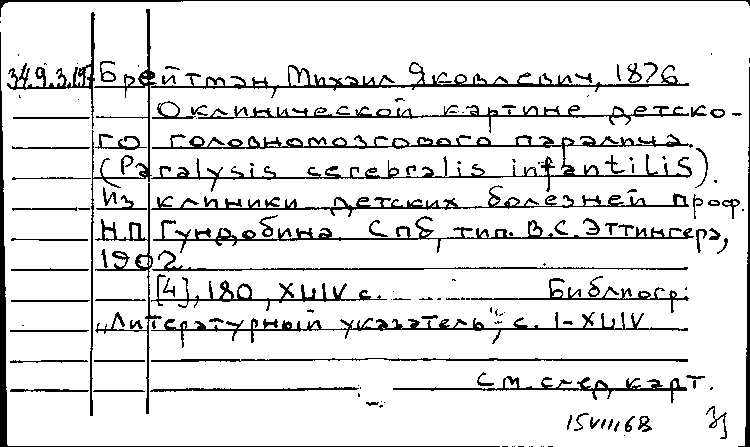 34.9.3.197 Брейтман, Михаил Яковлевич, 1876
О клинической картине детско-
го головномозгового паралича.
(Paralysis cerebralis infantilis).
Из клиники детских болезней проф.
Н.П Гундобина. Спб, тип. В.С. Эттингера,
1902
[4], 180, XLIV с. Библиогр:
"Литературный указатель", с. I-XLIV
См. след. карт.
15 VIII 68